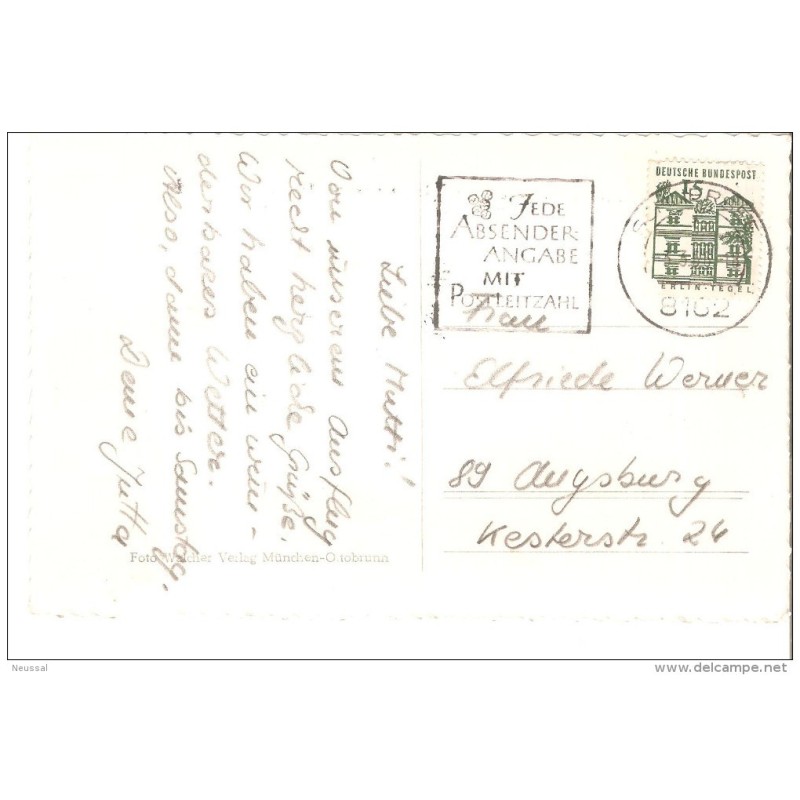 Liebe Mutti!
Von unserem Ausflug
recht herzliche Grüße.
Wir haben ein wun-
derbares Wetter.
Also, dann bis Samstag,
Deine Jutta
Foto Walcher Verlag München-Ottobrunn
JEDE
ABSENDER-
ANGABE
MIT
POSTLEITZAHL
DEUTSCHE BUNDESPOST
15
BERLIN-TEGEL
8162
Frau
Elfriede Werner
89 Augsburg
Kesterstr. 24
Neussal
delcampe.net